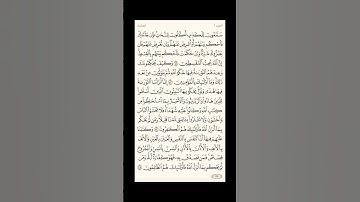 سَمَّٰعُونَ لِلْكَذِبِ أَكَّٰلُونَ لِلسُّحْتِ فَإِن جَآءُوكَ
فَٱحْكُم بَيْنَهُمْ أَوْ أَعْرِضْ عَنْهُمْ وَإِن تُعْرِضْ عَنْهُمْ فَلَن
يَضُرُّوكَ شَيْـًٔا وَإِنْ حَكَمْتَ فَٱحْكُم بَيْنَهُم بِٱلْقِسْطِ
إِنَّ ٱللَّهَ يُحِبُّ ٱلْمُقْسِطِينَ ٤٢ وَكَيْفَ يُحَكِّمُونَكَ
وَعِندَهُمُ ٱلتَّوْرَىٰةُ فِيهَا حُكْمُ ٱللَّهِ ثُمَّ يَتَوَلَّوْنَ مِنۢ بَعْدِ
ذَٰلِكَ وَمَآ أُو۟لَٰٓئِكَ بِٱلْمُؤْمِنِينَ ٤٣ إِنَّآ أَنزَلْنَا ٱلتَّوْرَىٰةَ
فِيهَا هُدًى وَنُورٌ يَحْكُمُ بِهَا ٱلنَّبِيُّونَ ٱلَّذِينَ أَسْلَمُوا۟
لِلَّذِينَ هَادُوا۟ وَٱلرَّبَّٰنِيُّونَ وَٱلْأَحْبَارُ بِمَا ٱسْتُحْفِظُوا۟ مِن
كِتَٰبِ ٱللَّهِ وَكَانُوا۟ عَلَيْهِ شُهَدَآءَ فَلَا تَخْشَوُا۟ ٱلنَّاسَ
وَٱخْشَوْنِ وَلَا تَشْتَرُوا۟ بِـَٔايَٰتِى ثَمَنًا قَلِيلًا وَمَن لَّمْ يَحْكُم
بِمَآ أَنزَلَ ٱللَّهُ فَأُو۟لَٰٓئِكَ هُمُ ٱلْكَٰفِرُونَ ٤٤ وَكَتَبْنَا
عَلَيْهِمْ فِيهَآ أَنَّ ٱلنَّفْسَ بِٱلنَّفْسِ وَٱلْعَيْنَ بِٱلْعَيْنِ وَٱلْأَنفَ
بِٱلْأَنفِ وَٱلْأُذُنَ بِٱلْأُذُنِ وَٱلسِّنَّ بِٱلسِّنِّ وَٱلْجُرُوحَ
قِصَاصٌ فَمَن تَصَدَّقَ بِهِۦ فَهُوَ كَفَّارَةٌ لَّهُۥ وَمَن
لَّمْ يَحْكُم بِمَآ أَنزَلَ ٱللَّهُ فَأُو۟لَٰٓئِكَ هُمُ ٱلظَّٰلِمُونَ ٤٥